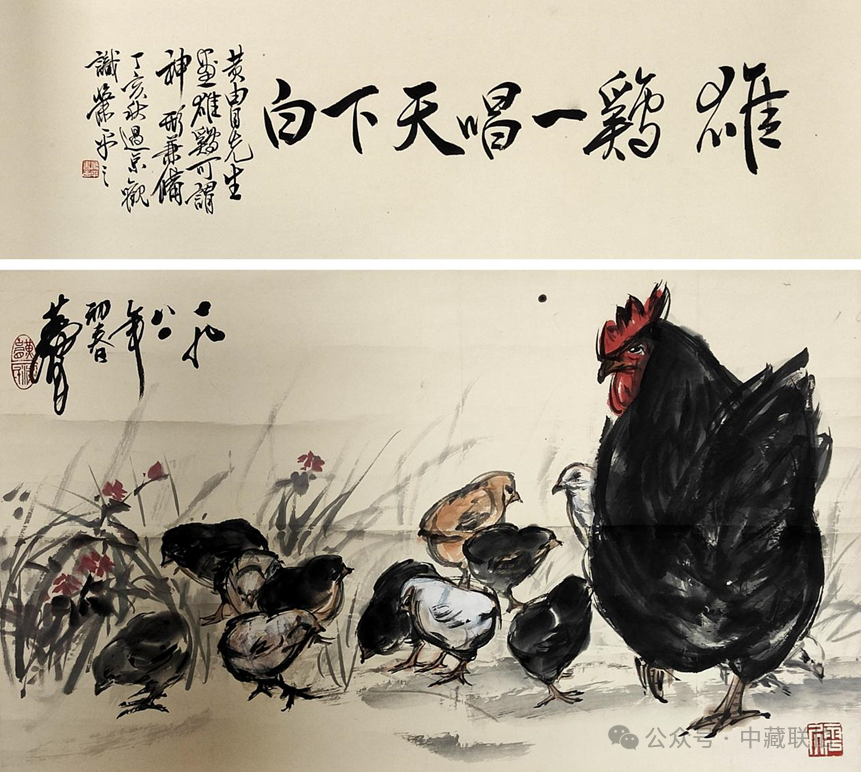 雄鷄一唱天下白
黄胄先生
畫雄鷄可謂
神形兼備
丁亥秋過京觀
識
一九
八
年
初春
黄胄
公众号 · 中藏联